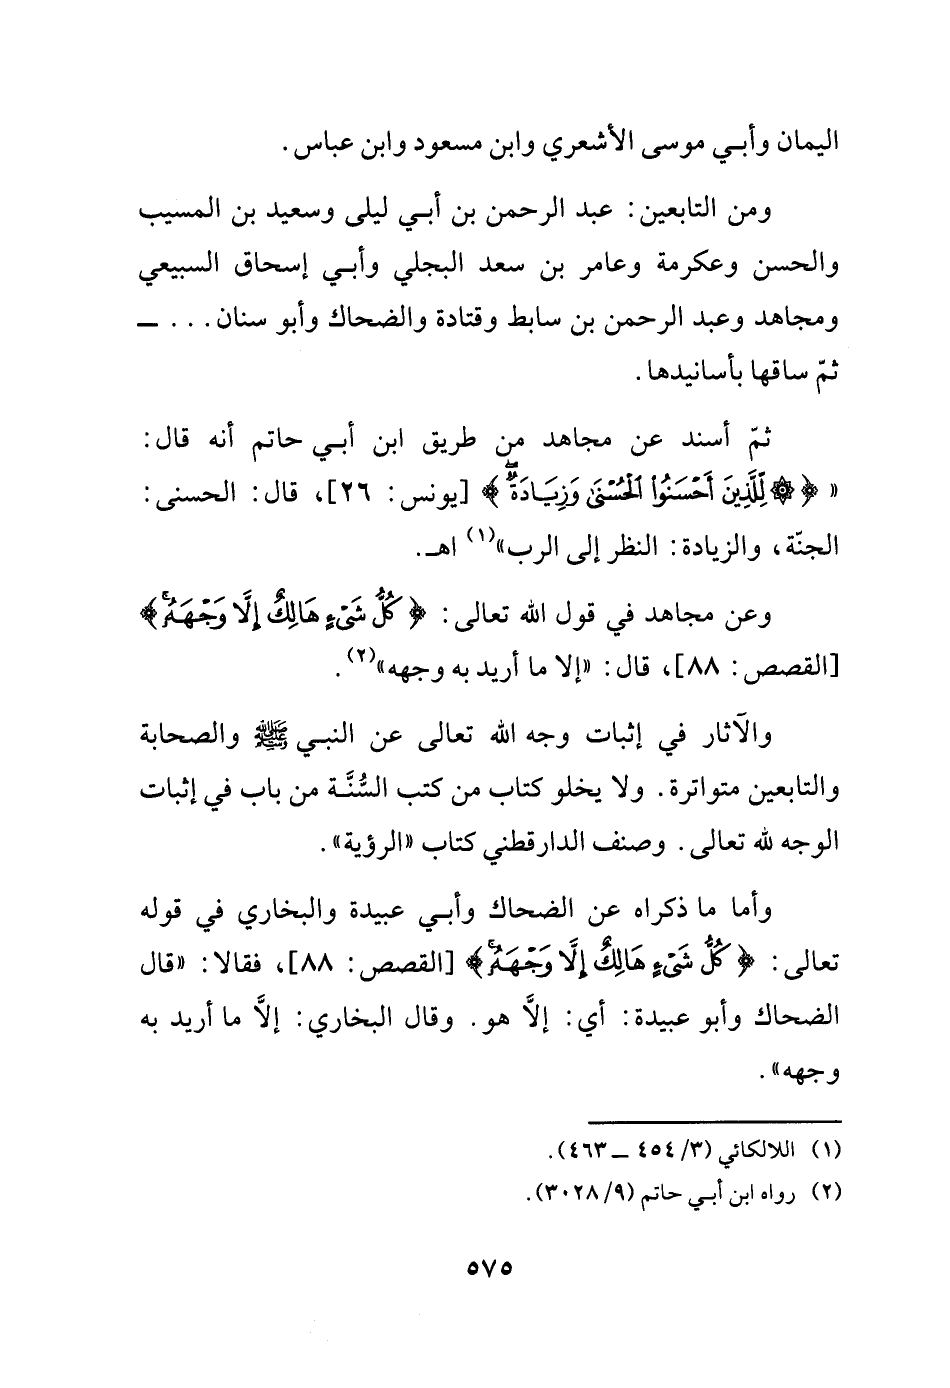 اليمان وأبي موسى الأشعري وابن مسعود وابن عباس.
ومن التابعين: عبد الرحمن بن أبي ليلى وسعيد بن المسيب
والحسن وعكرمة وعامر بن سعد البجلي وأبي إسحاق السبيعي
ومجاهد وعبد الرحمن بن سابط وقتادة والضحاك وأبو سنان... ـ
ثمّ ساقها بأسانيدها.
ثمّ أسند عن مجاهد من طريق ابن أبي حاتم أنه قال:
«﴿۞ لِّلَّذِينَ أَحْسَنُوا۟ ٱلْحُسْنَىٰ وَزِيَادَةٌۖ﴾ [يونس: ٢٦]، قال: الحسنى:
الجنّة، والزيادة: النظر إلى الرب»(١) اهـ.
وعن مجاهد في قول الله تعالى: ﴿كُلُّ شَىْءٍ هَالِكٌ إِلَّا وَجْهَهُۥۚ﴾
[القصص: ٨٨]، قال: «إلا ما أريد به وجهه»(٢).
والآثار في إثبات وجه الله تعالى عن النبي ﷺ والصحابة
والتابعين متواترة. ولا يخلو كتاب من كتب السُّنَّة من باب في إثبات
الوجه لله تعالى. وصنف الدارقطني كتاب «الرؤية».
وأما ما ذكراه عن الضحاك وأبي عبيدة والبخاري في قوله
تعالى: ﴿كُلُّ شَىْءٍ هَالِكٌ إِلَّا وَجْهَهُۥۚ﴾ [القصص: ٨٨]، فقالا: «قال
الضحاك وأبو عبيدة: أي: إلَّا هو. وقال البخاري: إلَّا ما أريد به
وجهه».
(١) اللالكائي (٣/ ٤٥٤ ـ ٤٦٣).
(٢) رواه ابن أبي حاتم (٩/ ٣٠٢٨).
٥٧٥